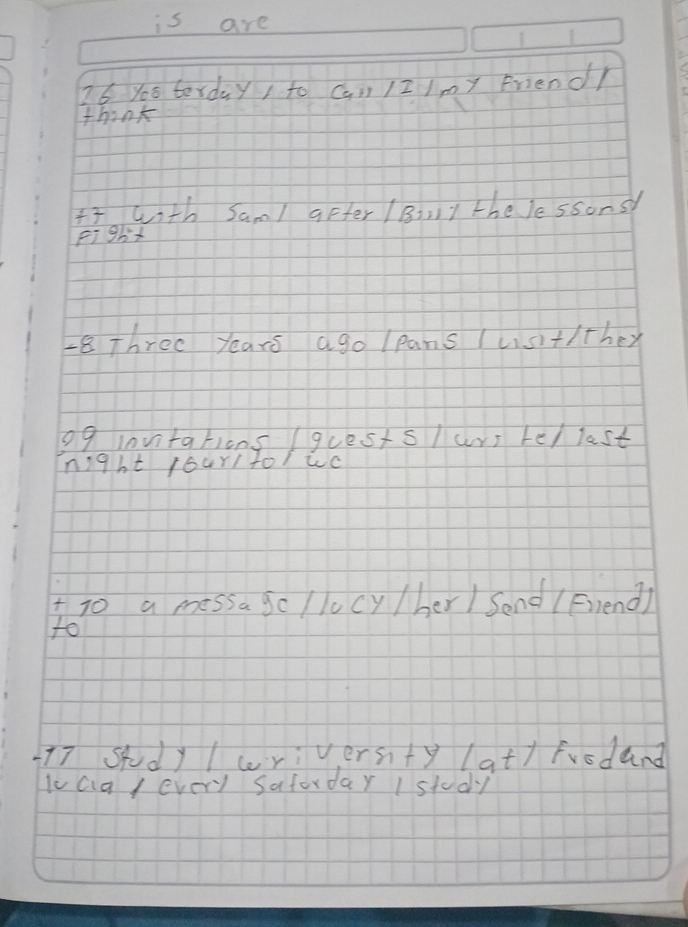 is are
?6 Yesterday / to Call / I / my Friend /
think
+7 with Sam / after / Bill / the lessons /
Fight
-8 Three Years ago / Paris / visit / They
?9 invitations / guests / write / last
night / our / to / we
+ 10 a message / lucy / her / Send / Friend /
to
-11 Study / university / at / Fred and
lucia / every Saturday / study